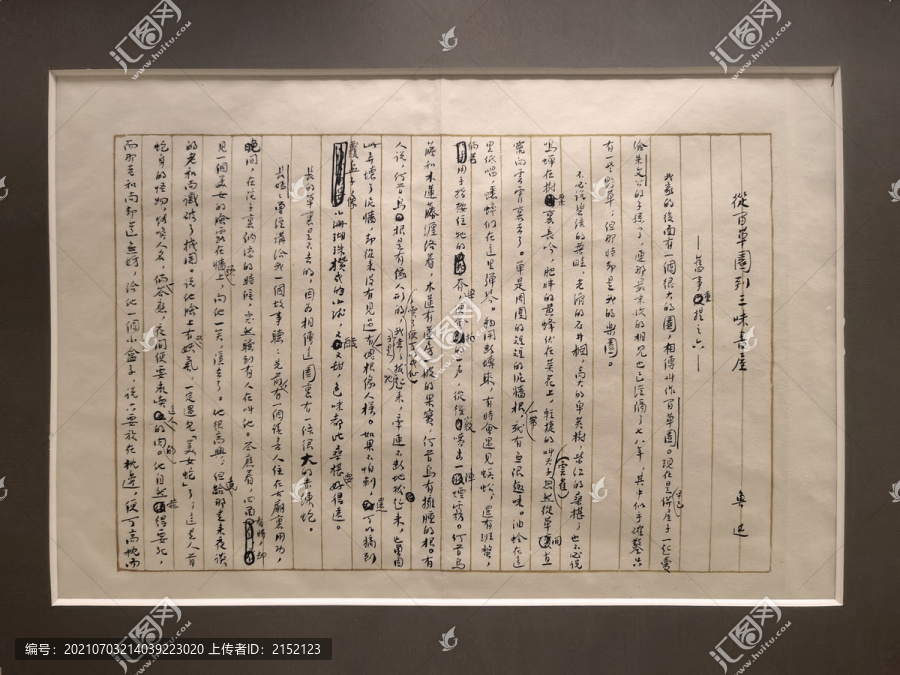 從百草園到三味書屋
—舊事重提之六—
魯迅
我家的後面有一個很大的園，相傳叫作百草園。現在是早已併屋子一起賣
給朱文公的子孫了，連那最末次的相見也已經隔了七八年，其中似乎確鑿只
有一些野草；但那時却是我的樂園。
不必說碧綠的菜畦，光滑的石井欄，高大的皂莢樹，紫紅的桑椹；也不必說
鳴蟬在樹葉裏長吟，肥胖的黃蜂伏在菜花上，輕捷的叫天子（雲雀）忽然從草間直
竄向雲霄裏去了。單是周圍的短短的泥牆根一帶，就有無限趣味。油蛉在這
里低唱，蟋蟀們在這里彈琴。翻開斷磚來，有時會遇見蜈蚣；還有斑蝥，
倘若用手指按住牠的脊梁，便會拍的一聲，從後竅噴出一陣煙霧。何首烏
藤和木蓮藤纏絡着，木蓮有蓮房一般的果實，何首烏有擁腫的根。有
人說，何首烏根是有像人形的，吃了便可以成仙，我於是常常拔它起來，牽連不斷地拔起來，也曾因
此弄壞了泥牆，却從來沒有見過有一塊根像人樣。如果不怕刺，還可以摘到
覆盆子，像小珊瑚珠攢成的小球，又酸又甜，色味都比桑椹好得遠。
長的草裏是不去的，因為相傳這園裏有一條很大的赤練蛇。
長媽媽曾經講給我一個故事聽：先前，有一個讀書人住在古廟裏用功，
晚間，在院子裏納涼的時候，突然聽到有人在叫他。答應着，四面看時，却
見一個美女的臉露在牆頭上，向他一笑，隱去了。他很高興；但竟給那走來夜談
的老和尚識破了機關。說他臉上有些妖氣，一定遇見「美女蛇」了；這是人首
蛇身的怪物，能喚人名，倘一答應，夜間便要來吃這人的肉的。他自然嚇得要死，
而那老和尚却道無妨，給他一個小盒子，說只要放在枕邊，便可高枕而
汇图网
www.huitu.com
编号：20210703214039223020 上传者ID：2152123